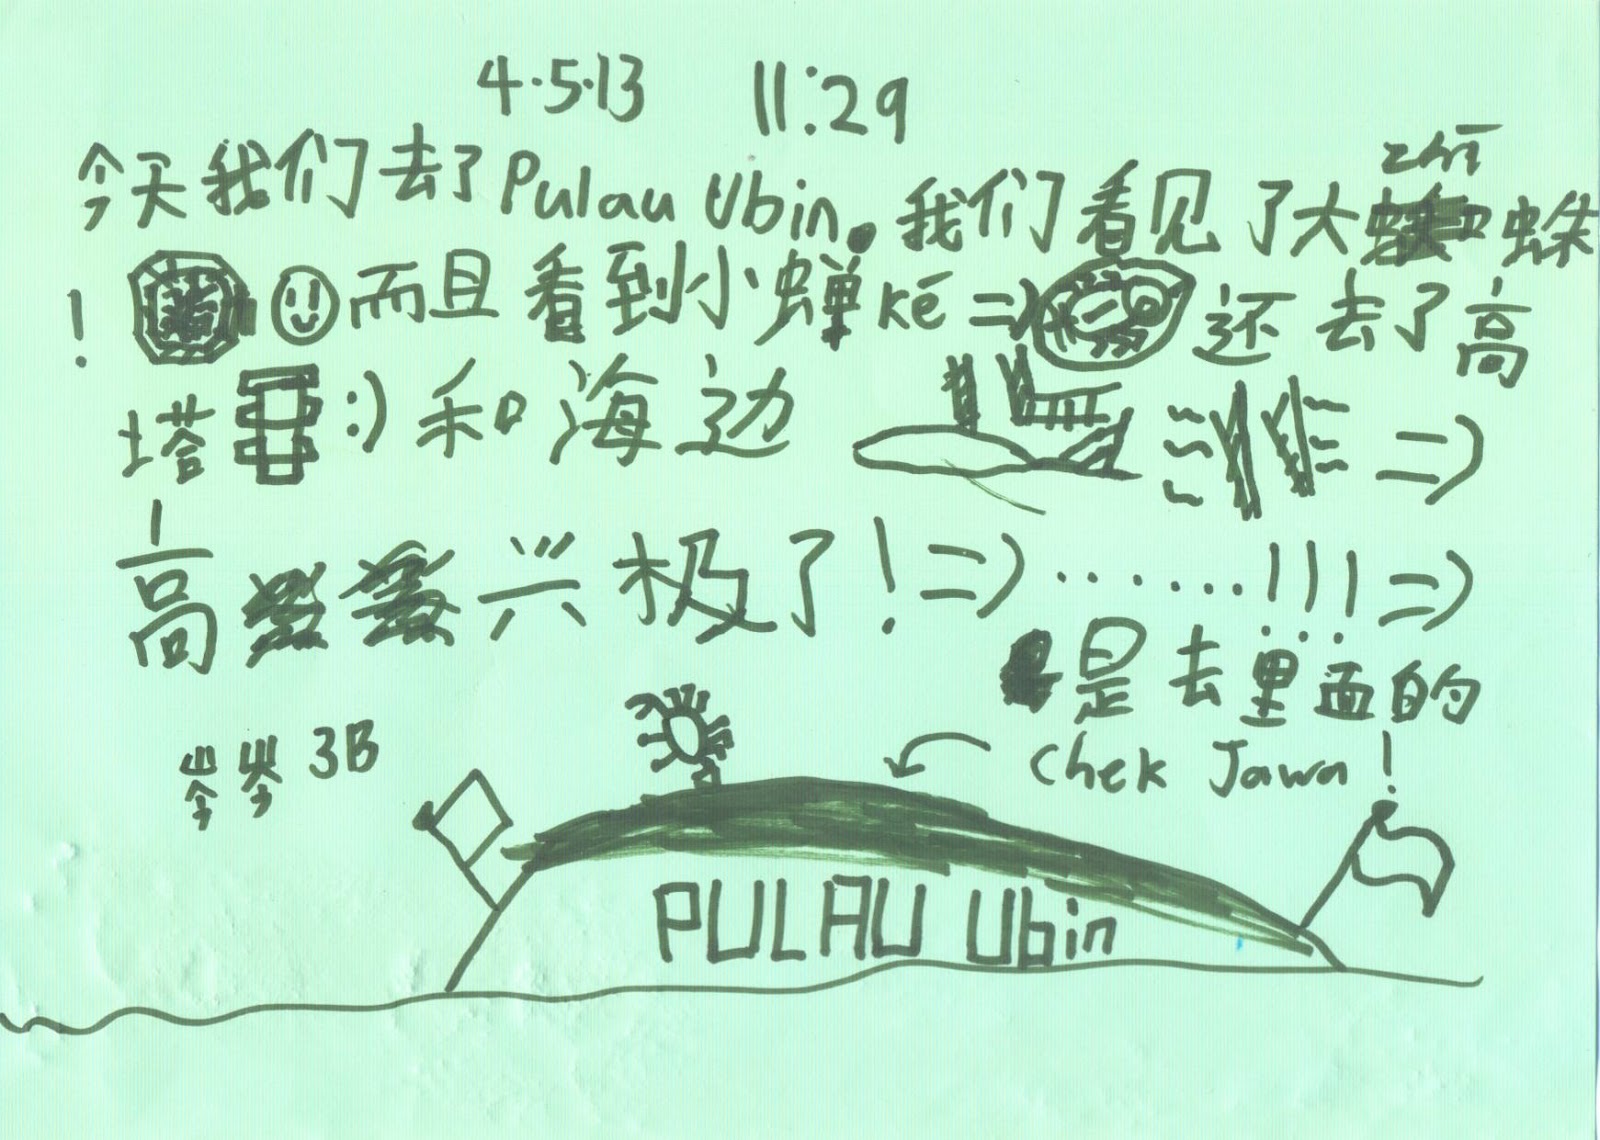 4.5.13 11:29
今天我们去了Pulau Ubin。我们看见了大zhī蛛
！而且看到小蝉ké =)还去了高
塔:)和海边 =)
高兴极了！=).......!!!=)
是去里面的
Chek Jawa!
岑岑 3B
PULAU Ubin